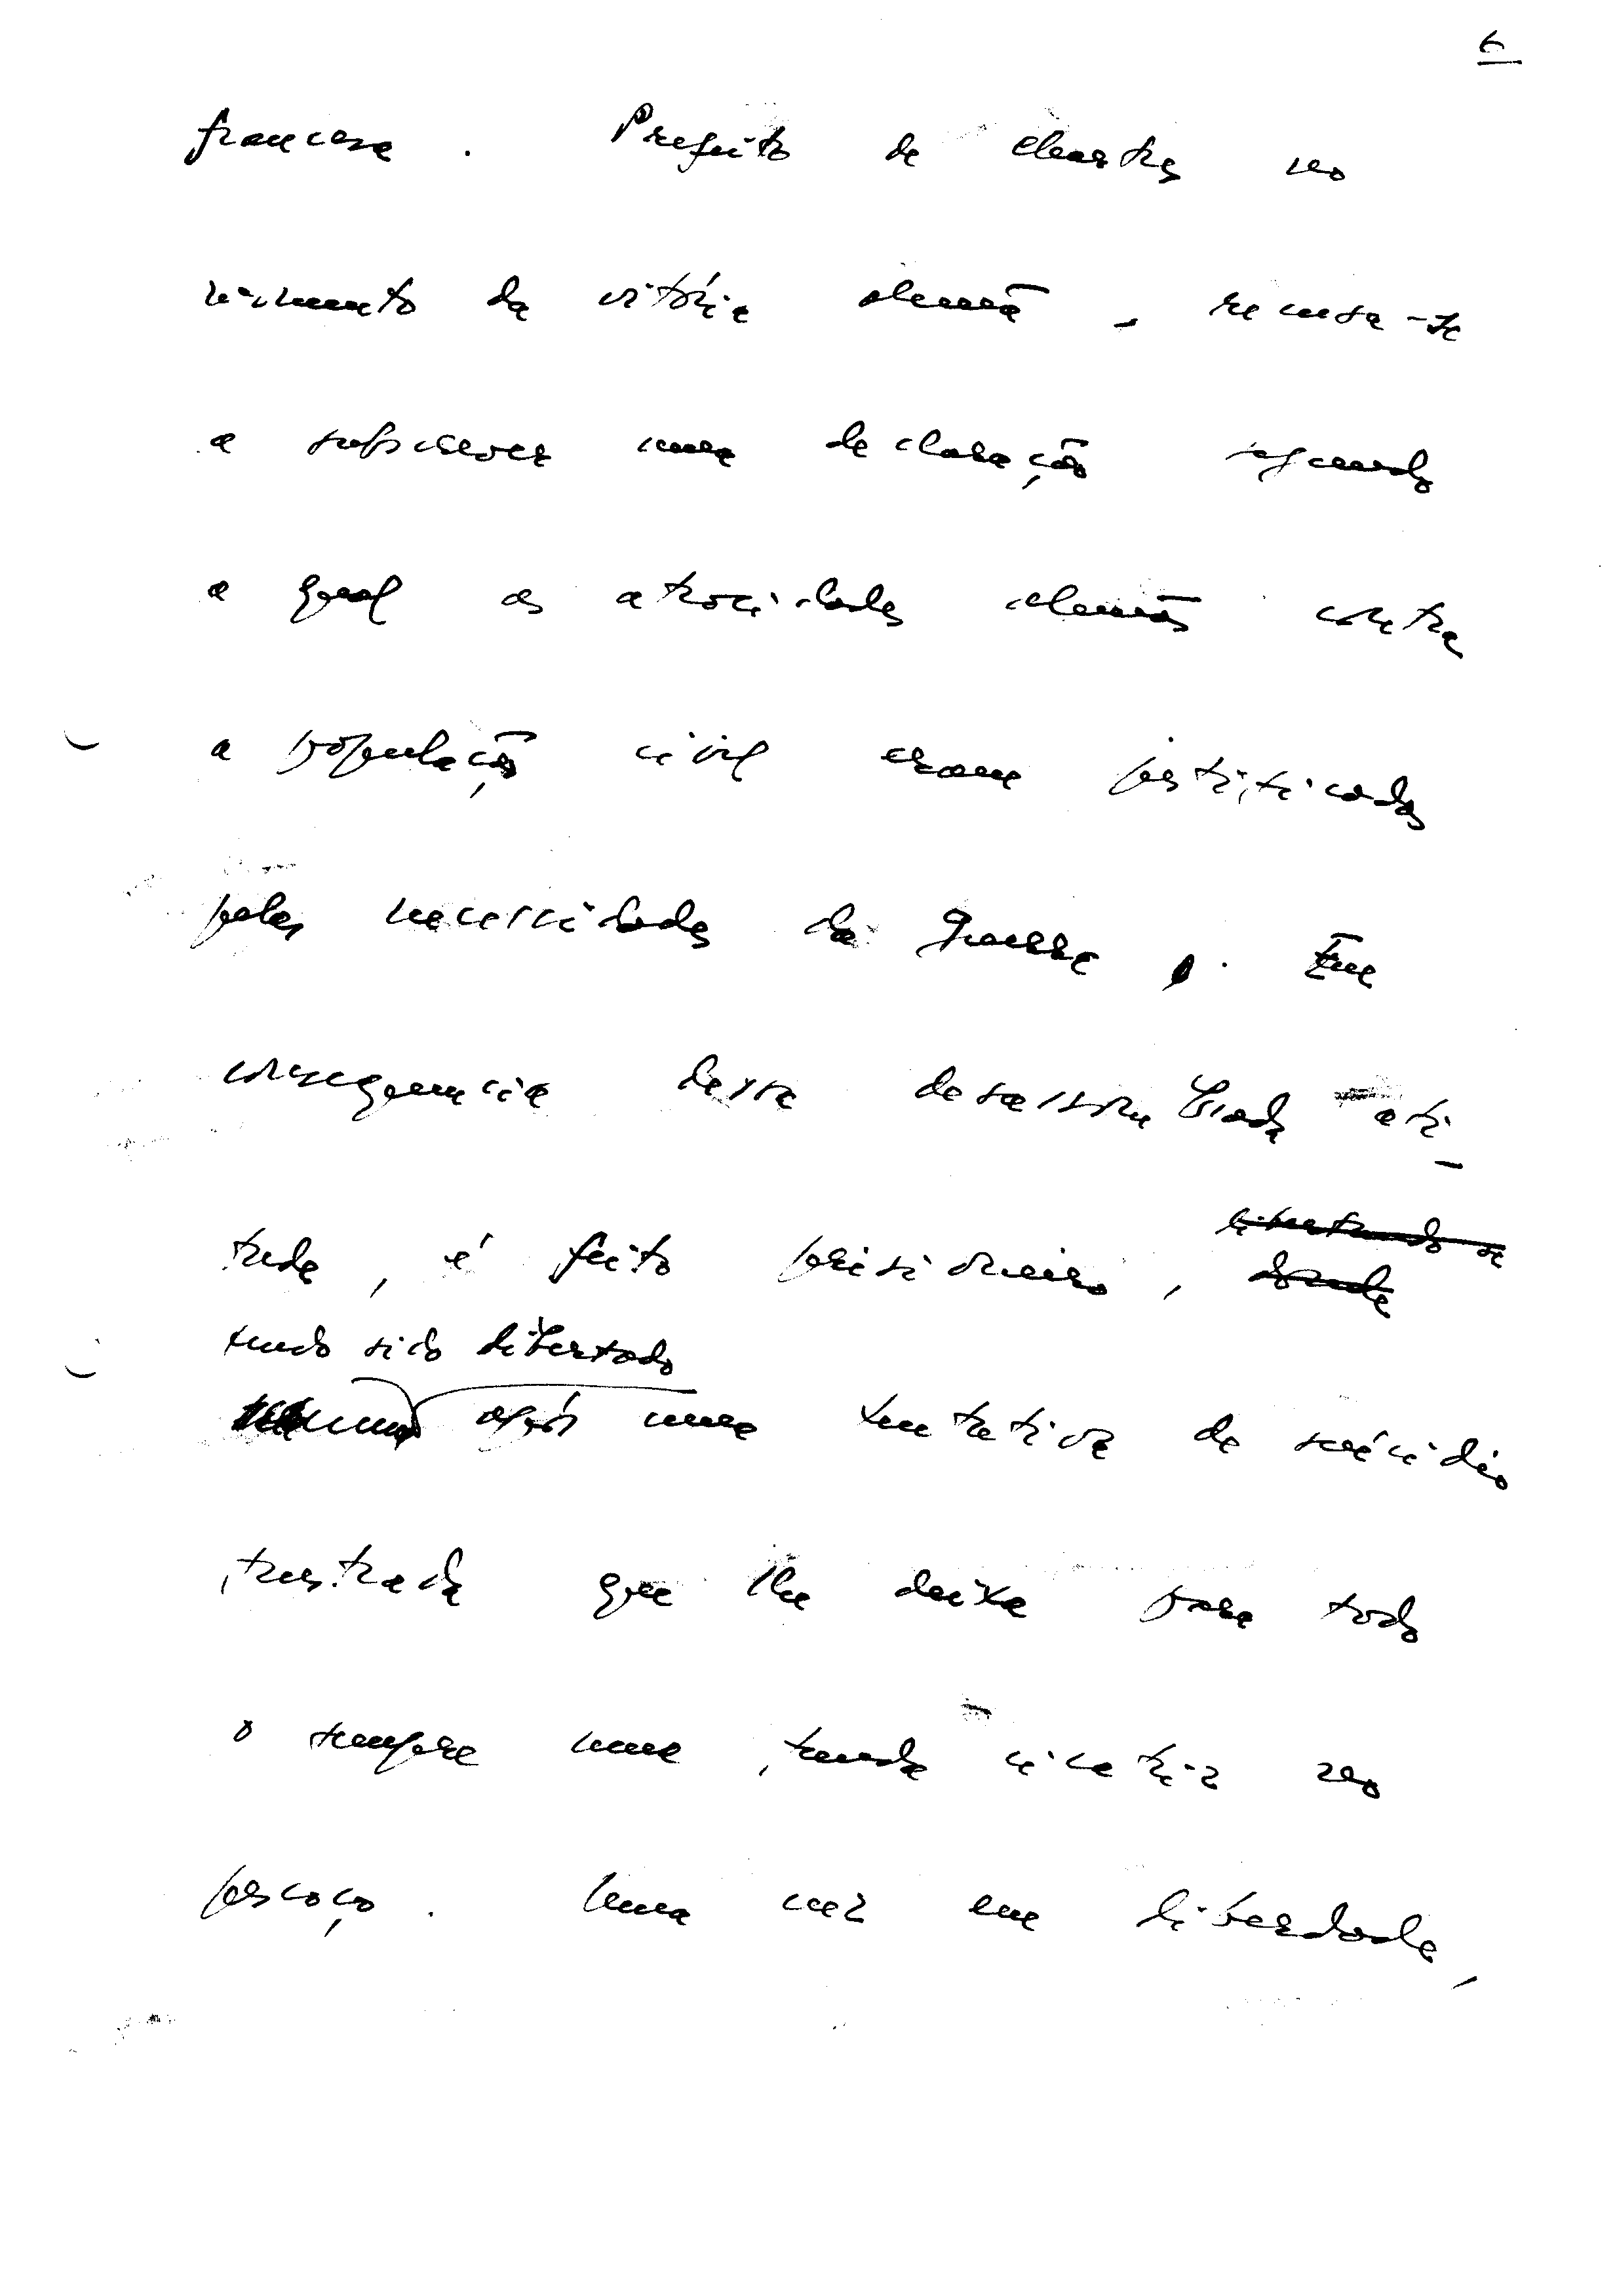 6
francesa. Prefeito de Chartres no
momento da vitória alemã, recusa-se
a subscrever uma declaração segundo
a qual as atrocidades alemãs contra
a população civil eram justificadas
pelas necessidades da guerra. Em
consequencia dessa desassombrada ati-
libertando-se
tude, é feito prisioneiro, donde
tendo sido libertado
após uma tentativa de suicídio
frustrada que lhe deixa para todo
o sempre uma funda cicatriz no
pescoço. Uma vez em liberdade,